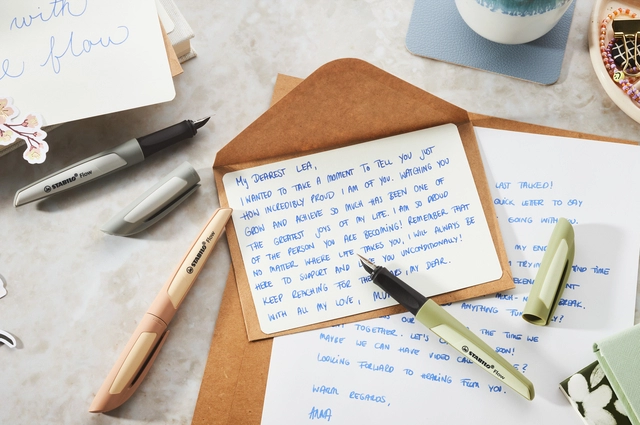 with
flow
STABILO flow
STABILO flow
My DEAREST LEA,
I WANTED TO TAKE A MOMENT TO TELL YOU JUST
HOW INCREDIBLY PROUD I AM OF YOU. WATCHING YOU
GROW AND ACHIEVE SO MUCH HAS BEEN ONE OF
THE GREATEST JOYS OF MY LIFE. I AM SO PROUD
OF THE PERSON YOU ARE BECOMING! REMEMBER THAT
NO MATTER WHERE LIFE TAKES YOU, I WILL ALWAYS BE
HERE TO SUPPORT AND LOVE YOU UNCONDITIONALLY!
KEEP REACHING FOR THE STARS, MY DEAR.
WITH ALL MY LOVE,
STABILO flow
LAST TALKED!
QUICK LETTER TO SAY
GOING WITH YOU.
MY
TIME
BREAK.
OUR THE TIME WE
TOGETHER. LET'S SOON!
MAYBE WE CAN HAVE VIDEO CALL
LOOKING FORWARD TO HEARING FROM YOU.
WARM REGARDS,
ANNA